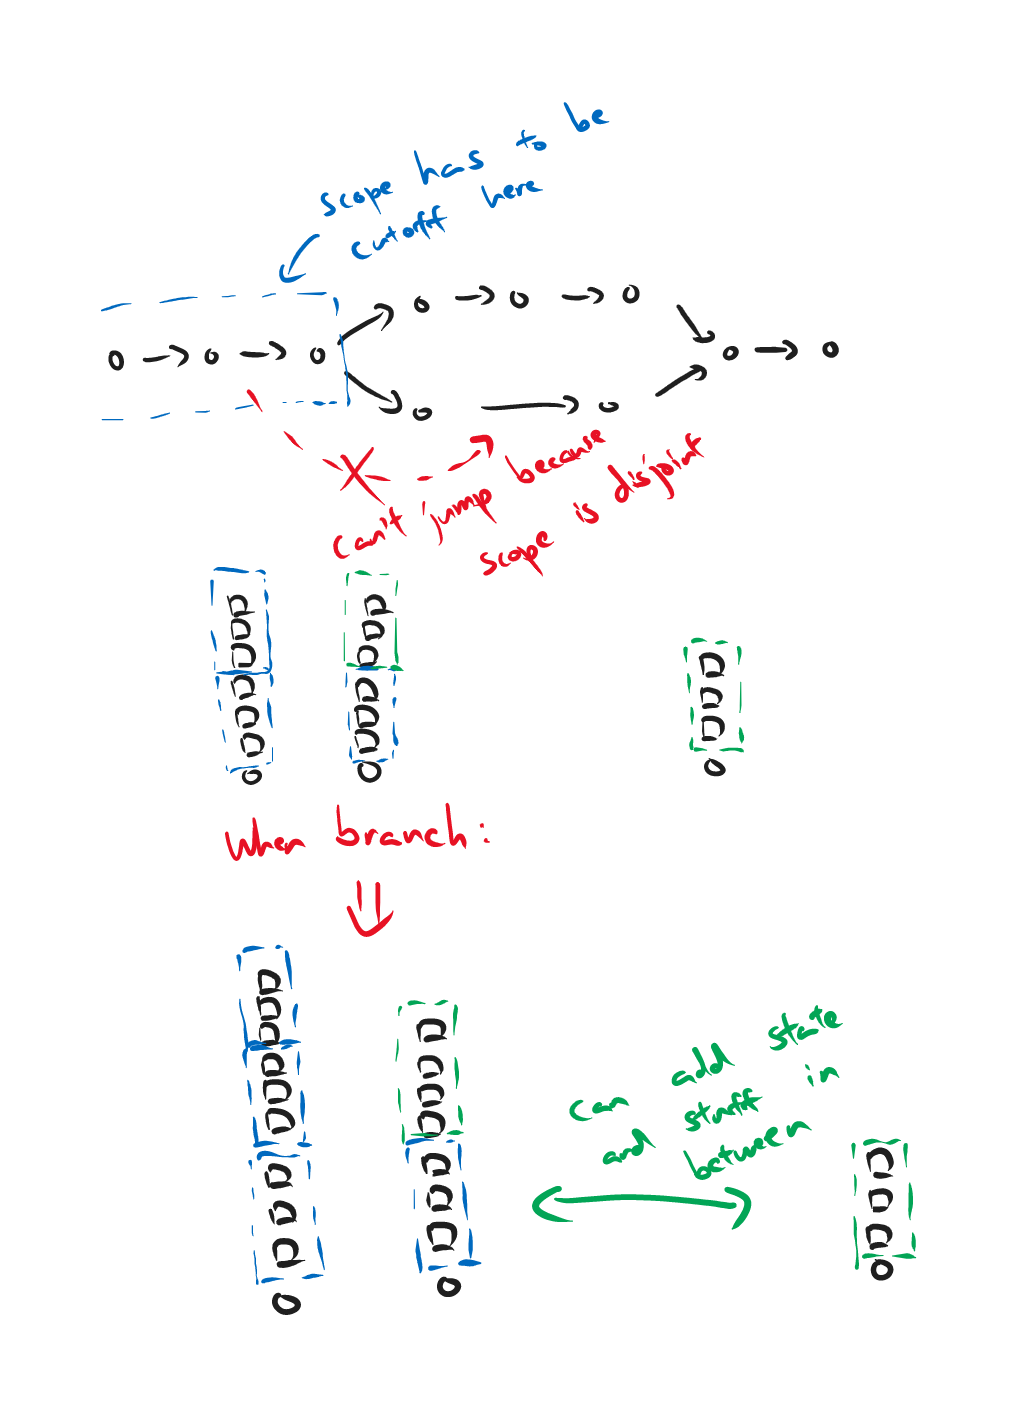 scope has to be
cutoff here
can't jump because
scope is disjoint
When branch:
can add state
and stuff in
between